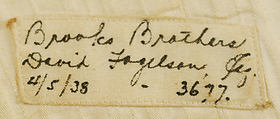 Brooks Brothers
David Fogelson, Esq.
4/5/38 - 3677.